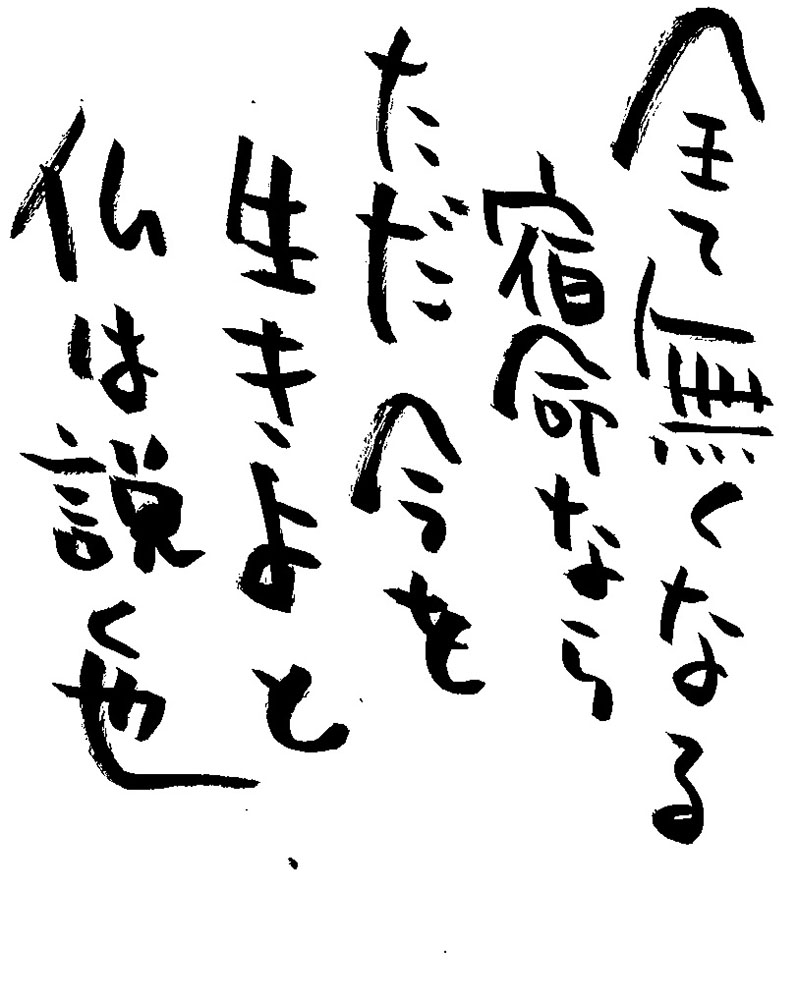 全て無くなる
宿命なら
ただ今を
生きよと
仏は説く也